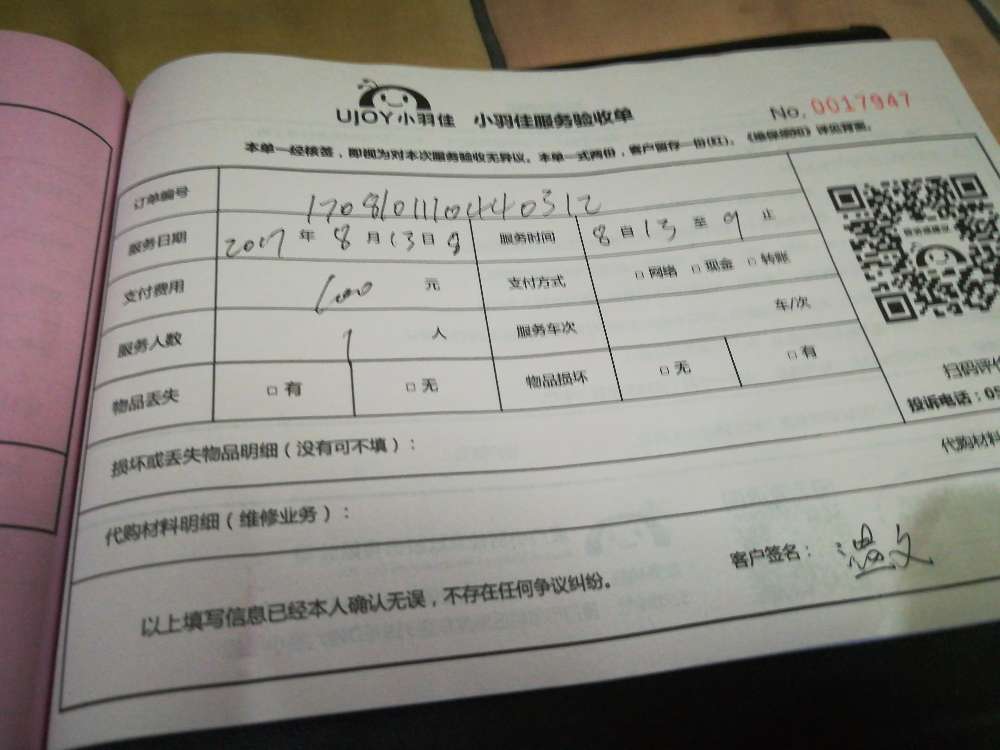 UJOY小羽佳 小羽佳服务验收单 No. 0017947
本单一经核签，即视为对本次服务验收无异议。本单一式两份，客户留存一份(红)。《维保细则》详见背面。
订单编号 170810111044 0312
服务日期 2017年8月13日 服务时间 8自13至9止
支付费用 600元 支付方式 □网络 □现金 □转账
服务人数 1人 服务车次 车/次
物品丢失 □有 □无 物品损坏 □无 □有
扫码评价
投诉电话：05
损坏或丢失物品明细（没有可不填）：
代购材料
代购材料明细（维修业务）：
客户签名：温文
以上填写信息已经本人确认无误，不存在任何争议纠纷。